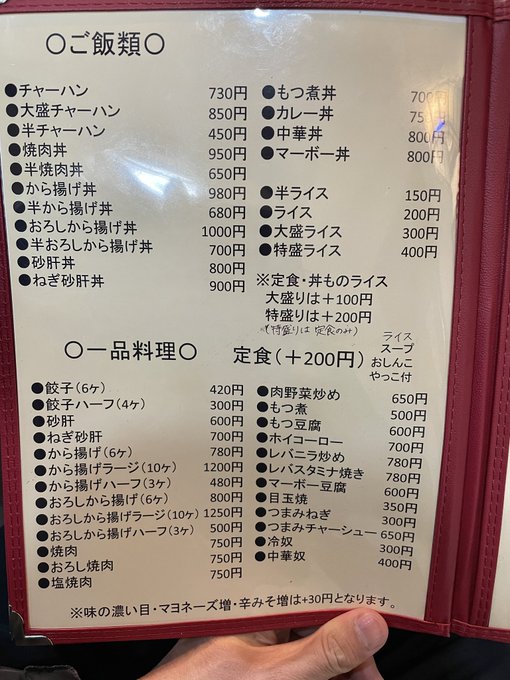 ○ご飯類○
●チャーハン 730円
●大盛チャーハン 850円
●半チャーハン 450円
●焼肉丼 950円
●半焼肉丼 650円
●から揚げ丼 980円
●半から揚げ丼 680円
●おろしから揚げ丼 1000円
●半おろしから揚げ丼 700円
●砂肝丼 800円
●ねぎ砂肝丼 900円
●もつ煮丼 700円
●カレー丼 750円
●中華丼 800円
●マーボー丼 800円
●半ライス 150円
●ライス 200円
●大盛ライス 300円
●特盛ライス 400円
※定食・丼ものライス
大盛りは＋100円
特盛りは＋200円
※(特盛りは 定食のみ)
○一品料理○ 定食(＋200円)
ライス
スープ
おしんこ
やっこ付
●餃子(6ヶ) 420円
●餃子ハーフ(4ヶ) 300円
●砂肝 600円
●ねぎ砂肝 700円
●から揚げ(6ヶ) 780円
●から揚げラージ(10ヶ) 1200円
●から揚げハーフ(3ヶ) 480円
●おろしから揚げ(6ヶ) 800円
●おろしから揚げラージ(10ヶ) 1250円
●おろしから揚げハーフ(3ヶ) 500円
●焼肉 750円
●おろし焼肉 750円
●塩焼肉 750円
●肉野菜炒め 650円
●もつ煮 500円
●もつ豆腐 600円
●ホイコーロー 700円
●レバニラ炒め 780円
●レバスタミナ焼き 780円
●マーボー豆腐 600円
●目玉焼 350円
●つまみねぎ 300円
●つまみチャーシュー 650円
●冷奴 300円
●中華奴 400円
※味の濃い目・マヨネーズ増・辛みそ増は+30円となります。